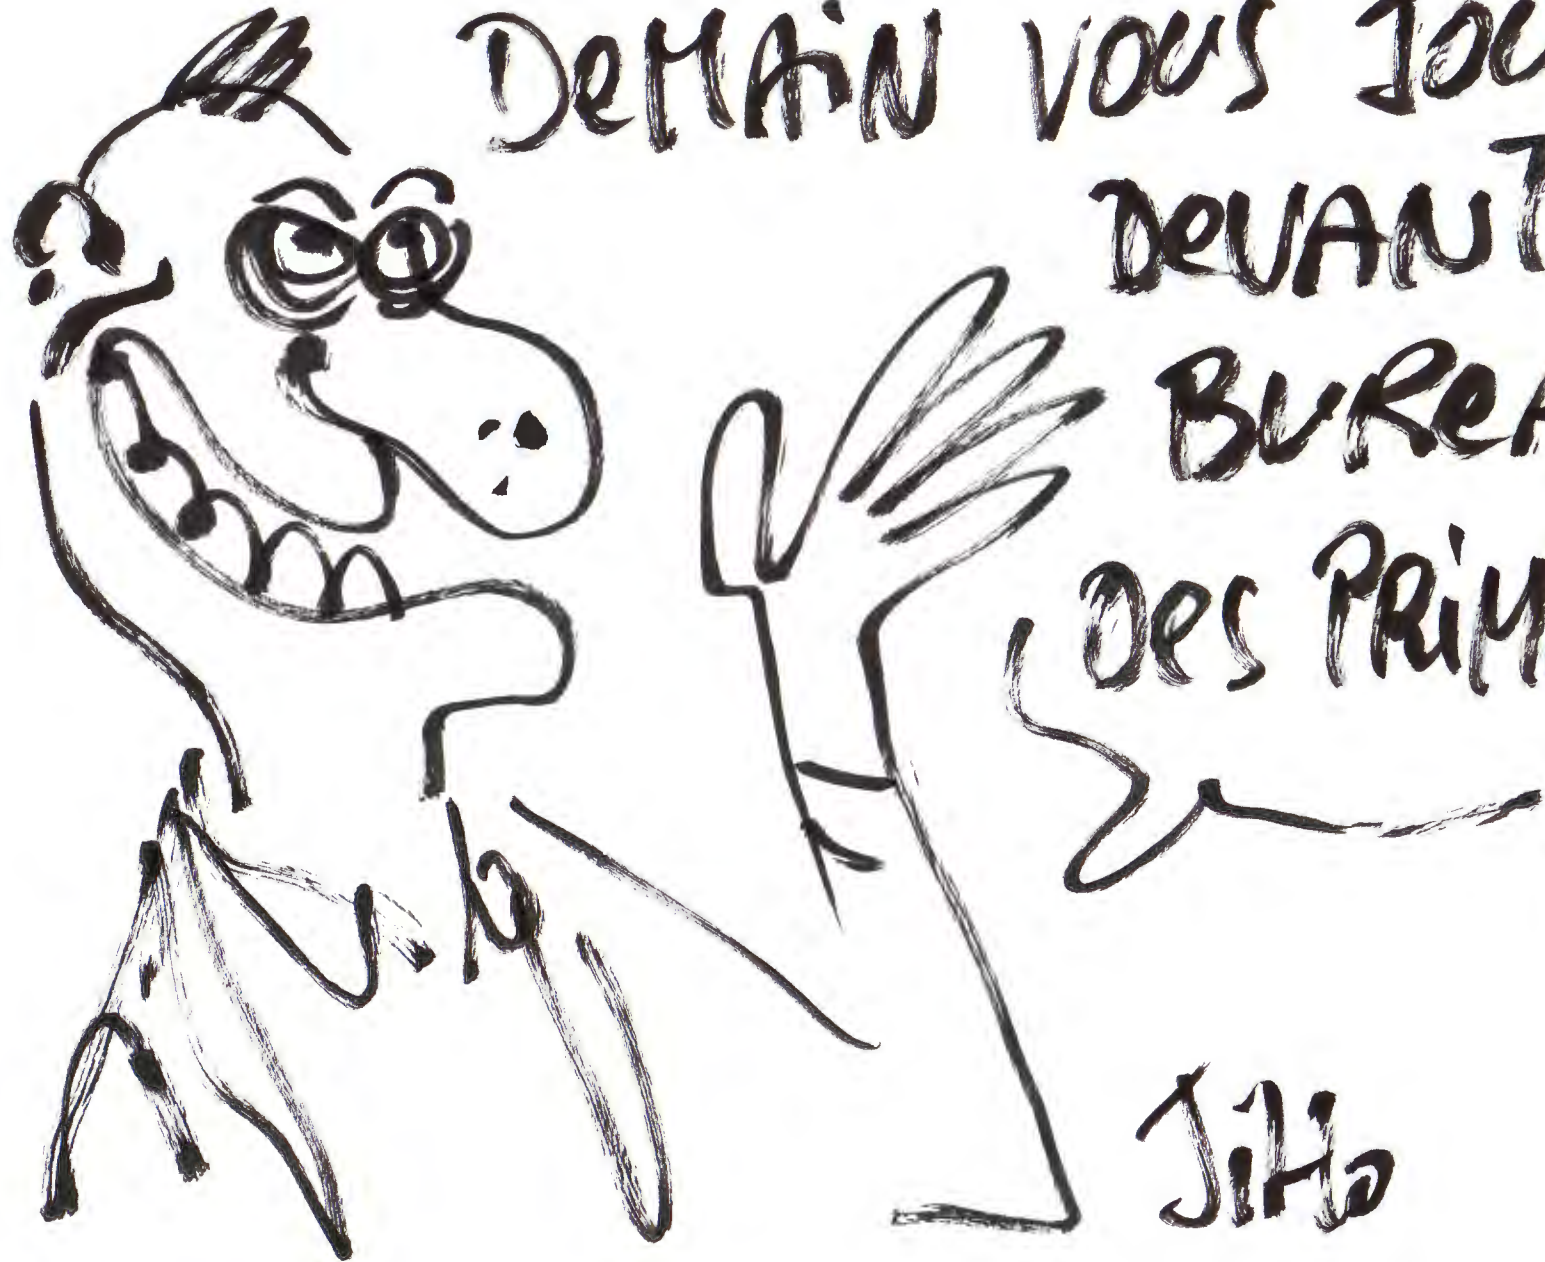 DeMAiN VOUS JOU
DeVANT
BUREA
Des PRiM
JiHo